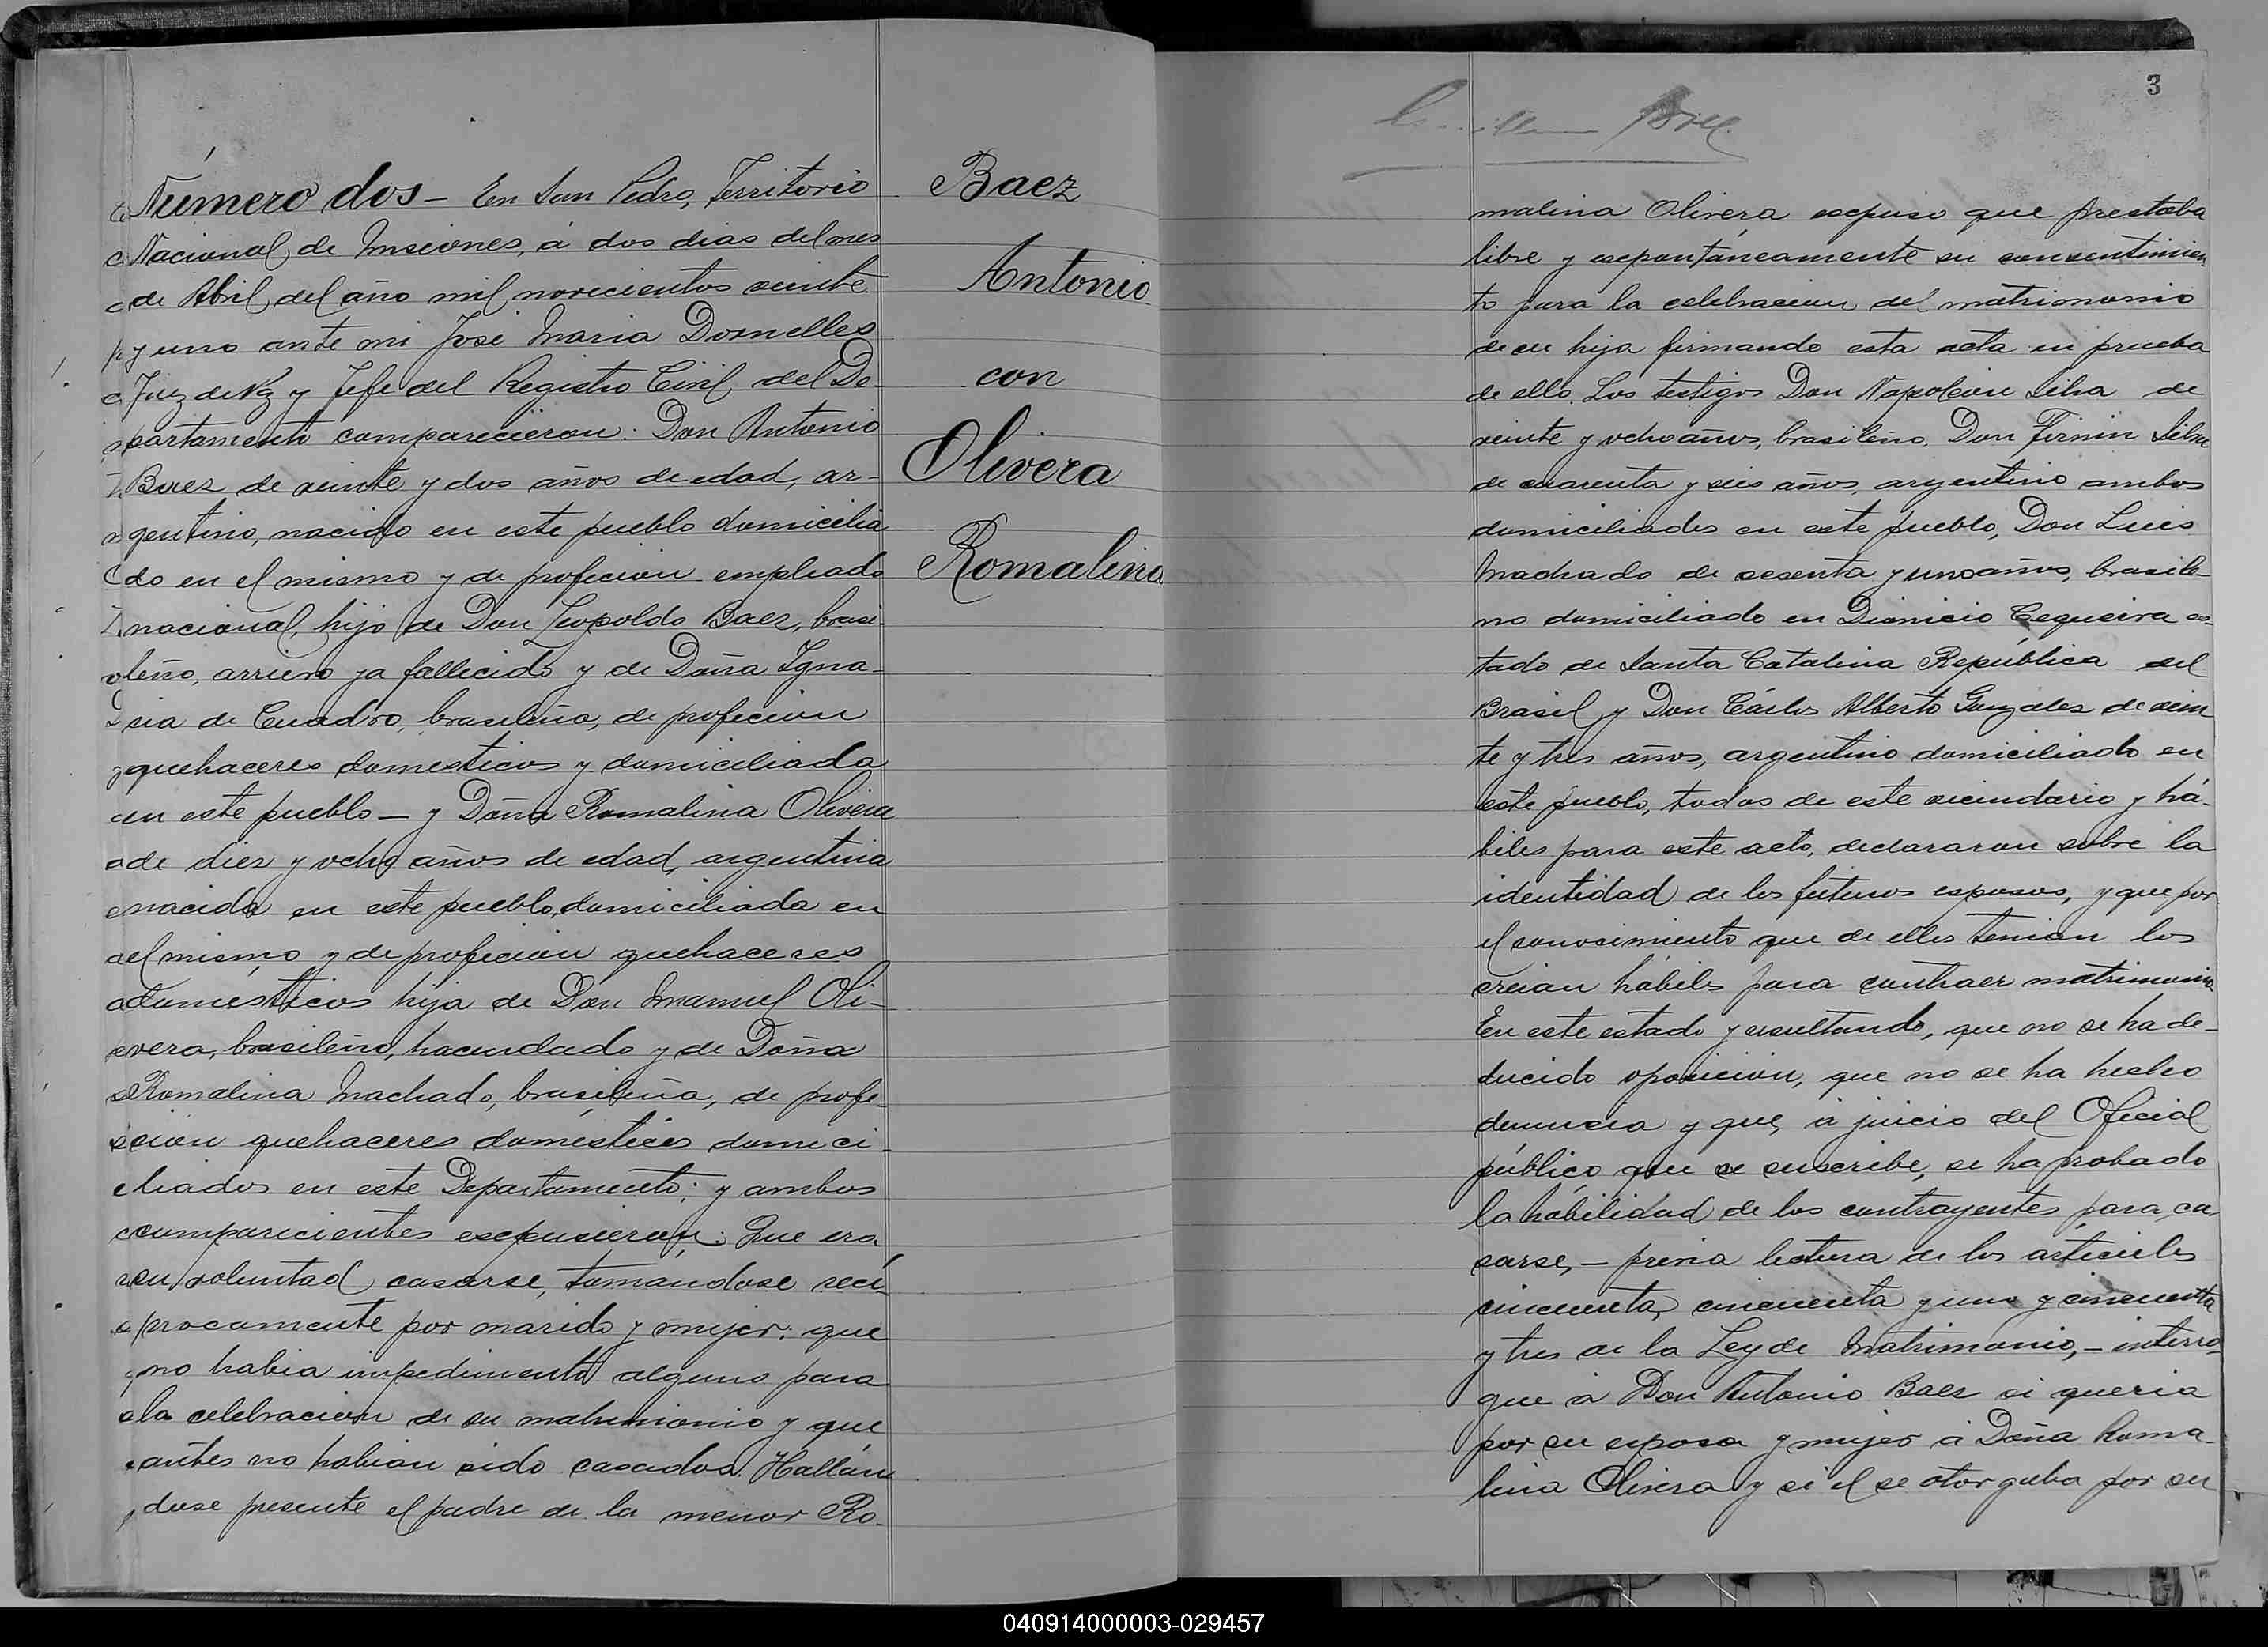 Número dos – En San Pedro, Territorio
Nacional de Misiones, á dos dias del mes
de Abril del año mil novecientos veinte
y uno ante mi José Maria Dornelles
Juez de Paz y Jefe del Registro Civil del De-
partamento comparecieron: Don Antonio
Baez de veinte y dos años de edad, ar-
gentino, nacido en este pueblo domicilia
do en el mismo y de profecion empleado
nacional, hijo de Don Leopoldo Baez, brasi-
leño, arriero ya fallecido y de Doña Igna-
cia de Cuadro, brasileña, de profecion
quehaceres domesticos y domiciliada
en este pueblo – y Doña Romalina Olivera
de diez y ocho años de edad, argentina
nacida en este pueblo, domiciliada en
el mismo y de profecion quehaceres
domésticos hija de Don Manuel Oli-
vera, brasileño, hacendado y de Doña
Romalina Machado, brasileña, de profe-
cion quehaceres domésticos domici-
liados en este Departamento; y ambos
comparecientes escpusieron: Que era
su voluntad casarse, tomandose recí-
procamente por marido y mujer; que
no habia impedimento alguno para
la celebracion de su matrimonio y que
antes no habian sido casados. Hallán
dose presente el padre de la menor Ro-
Baez
Antonio
con
Olivera
Romalina
3
malina Olivera escpuso que prestaba
libre y escpontáneamente su consentimien
to para la celebracion del matrimonio
de su hija firmando esta acta en prueba
de ello. Los testigos Don Napoleon Silva de
veinte y ocho años, brasileño, Don Firmin Silva
de cuarenta y seis años, argentino ambos
domiciliados en este pueblo, Don Luis
Machado de sesenta y uno años, brasile-
no domiciliado en Dionicio Cequeira es-
tado de Santa Catalina República del
Brasil y Don Cárlos Alberto Gonzales de vein
te y tres años, argentino domiciliado en
este pueblo, todos de este vecindario y há-
biles para este acto, declararon sobre la
identidad de los futuros esposos, y que por
el conocimiento que de ellos tenian los
creian hábiles para contraer matrimonio
En este estado y resultando, que no se ha de-
ducido oposicion, que no se ha hecho
denuncia y que, á juicio del Oficial
público que se suscribe, se ha probado
la habilidad de los contrayentes para ca
sarse, – previa lectura de los artículos
cincuenta, cincuenta y uno y cincuenta
y tres de la Ley de Matrimonio, – interro
gue á Don Antonio Baez si queria
por su esposa y mujer á Doña Roma-
lina Olivera y si el se otorgaba por su
040914000003-029457